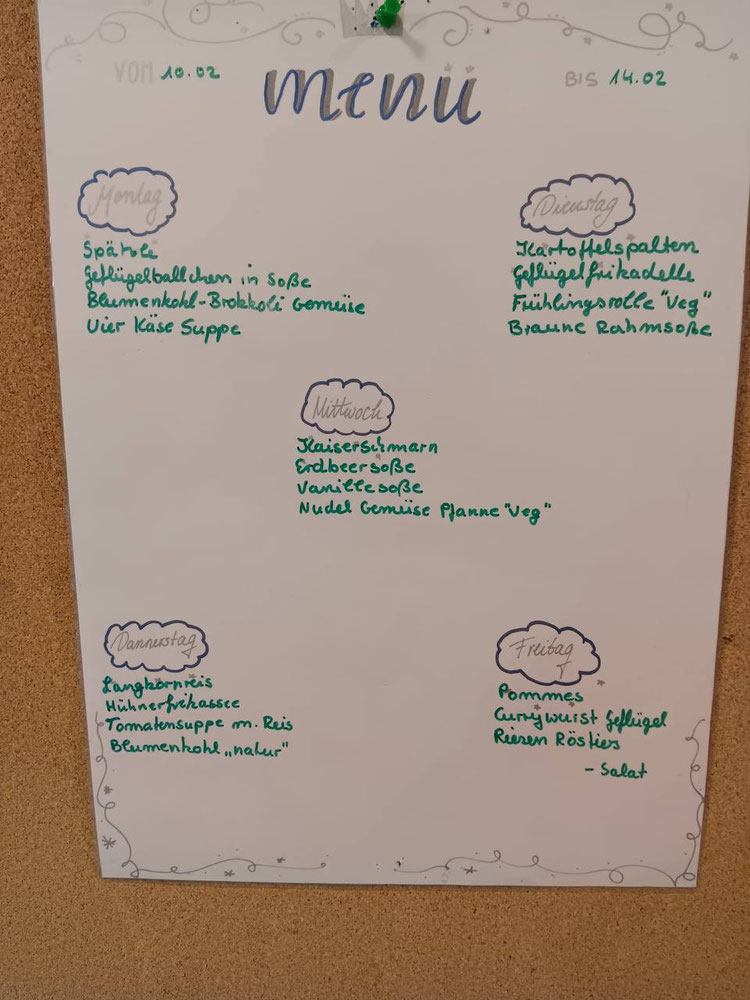 VOM 10.02
menü
BIS 14.02
Montag
Spätzle
Geflügelbällchen in Soße
Blumenkohl-Brokkoli Gemüse
Vier Käse Suppe
Dienstag
Kartoffelspalten
Geflügelfrikadelle
Frühlingsrolle "Veg"
Braune Rahmsoße
Mittwoch
Kaiserschmarn
Erdbeersoße
Vanillesoße
Nudel Gemüse Pfanne "Veg"
Donnerstag
Langkornreis
Hühnerfrikassee
Tomatensuppe m. Reis
Blumenkohl „natur"
Freitag
Pommes
Currywurst Geflügel
Riesen Rösties
- Salat